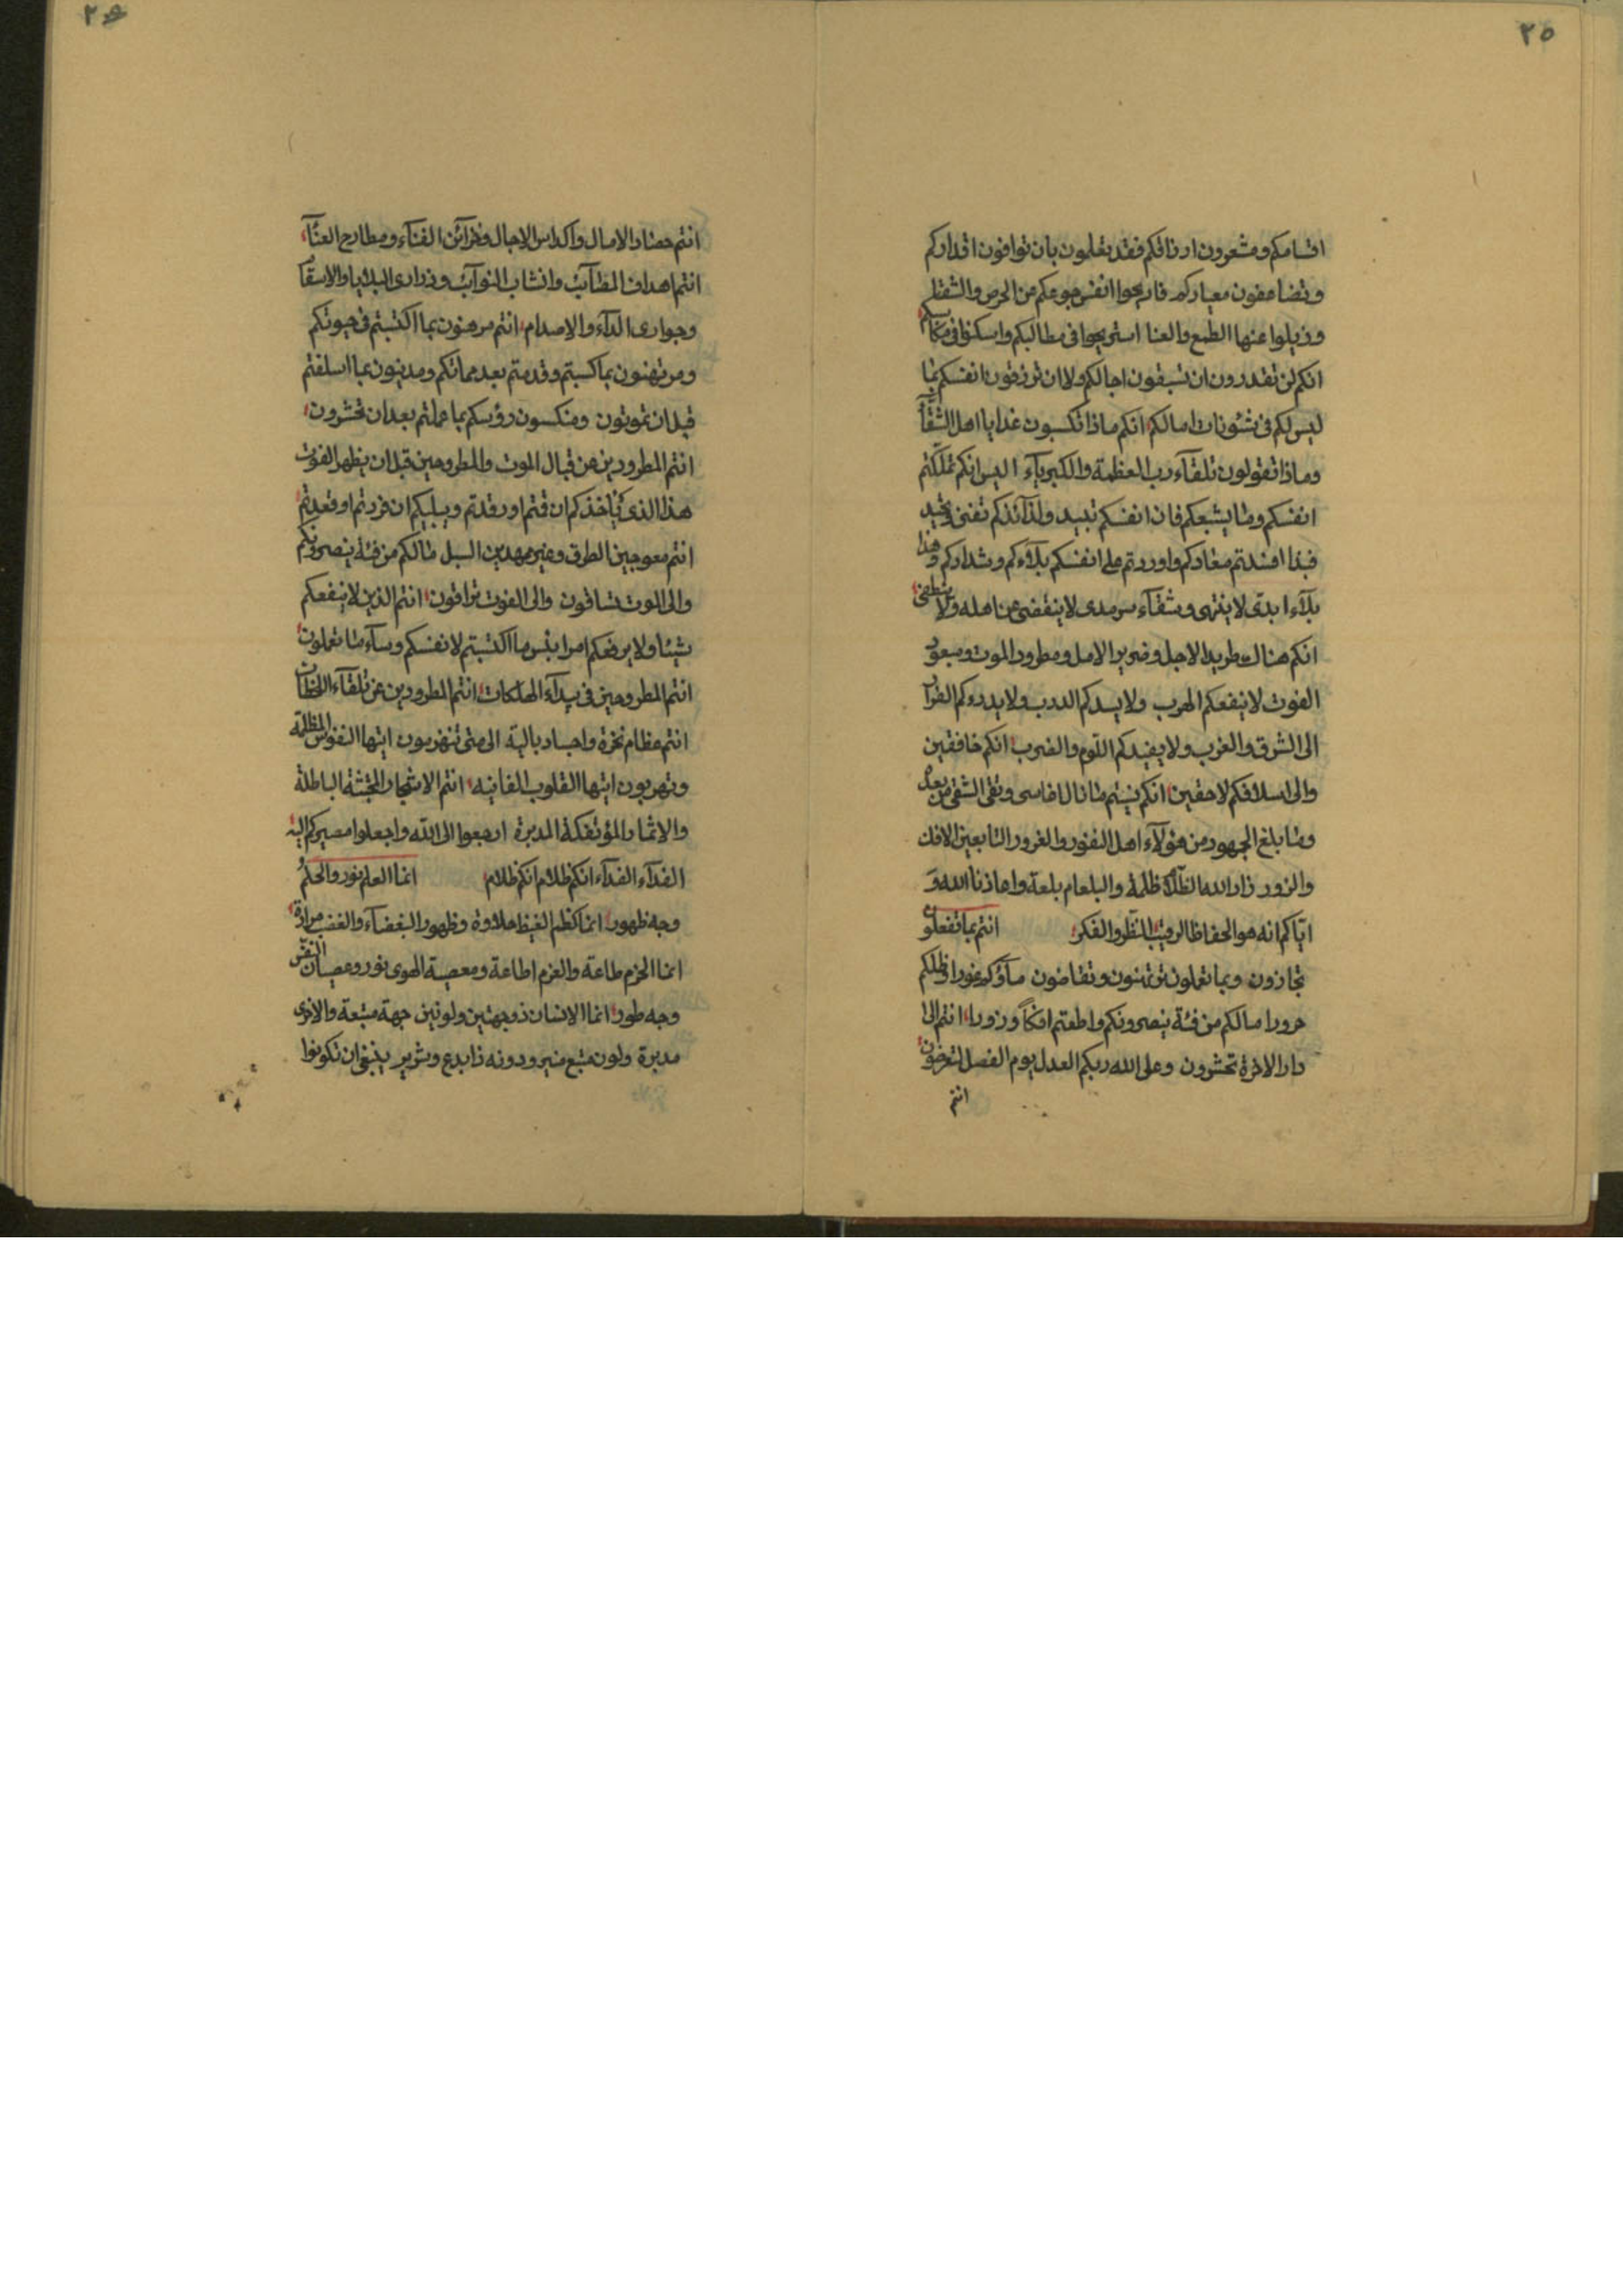 ٢٥
اقسامكم ومشعرون ارزاقكم فقد تعلمون بان توافون اقداركم
وتضاعفون معياركم فاريحوا انفس جوعكم من الحرص والشقا
وزيلوا عنها الطمع والعنا استريحوا فى مطالبكم واسكنوا فى
انكم لن تقدرون ان تسبقون اجالكم ولا ان ترزقون انفسكم بما
ليس لكم فى شئونات امالكم انكم ماذا تكسبون غدا يا اهل الشقآ
وماذا تقولون تلقآء رب العظمة والكبريآء اليس انكم تملكتم
انفسكم وما يشبعكم فان انفسكم تبيد ولذآئذكم تفنى
فبذا افسدتم معادكم واوردتم على انفسكم بلآءكم وشدادكم وهذا
بلآء ابدى لا ينتهى وشقآء سرمدى لا ينقضى عن اهله ولا ينطفى
انكم هنالك طريد الاجل وضرير الامل ومطرود الموت
الفوت لا ينفعكم الهرب ولا يسدكم الدرب ولا يدرءكم الفرار
الى الشرق والغرب ولا يفيدكم اللوم والضرب انكم خافقين
والى اسلافكم لاحقين انكم نسيتم ما نال القاسى وبقى الشقى من بعد
وما بلغ الجهود من هؤلآء اهل النفور والغرور التابعين الافك
والزور زاد الله الظلآم ظلمة والبلعام بلعة واعاذنا الله و
اياكم انه هو الحفاظ الرقيب النظر والفكر انتم بما تفعلون
تجازون وبما تعملون ترتهنون وتقاضون مآؤكم غورا وظلكم
حرورا مالكم من فئة ينصرونكم واطعتم افكاً وزورا انتم الى
دار الاخرة تحشرون وعلى الله ربكم العدل يوم الفصل لتعرضون
انتم
٢٦
انتم حصاد الامال واكداس الاجال وخزآئن الفنآء ومطارح العنآء
انتم اهداف المصآئب وانشاب النوآئب وذرارى البلايا والاسقآم
وجوارى الدآء والاصدام انتم مرهنون بما اكتسبتم فى حيوتكم
ومرتهنون بما كسبتم وقدمتم بعد مماتكم ومدينون بما اسلفتم
قبل ان تموتون ومنكسون رؤسكم بما عملتم بعد ان تحشرون
انتم المطرودين عن قبال الموت والمطروحين قبل ان يظهر الفوت
هذا الذى يأخذكم ان قمتم او رقدتم ويبليكم ان فررتم او قعدتم
انتم معوجين الطرق وغير مهدين السبل مالكم من فئة ينصرونكم
والى الموت تساقون والى الفوت ترافون انتم الذين لا ينفعكم
شيئا ولا يرفعكم امرا بئس ما اكتسبتم لانفسكم وسآء ما تعملون
انتم المطروحين فى بيدآء الهلكات انتم المطرودين عن تلقآء اللحظات
انتم عظام نخرة واجساد بالية الى متى تنهزمون ايتها النفوس المظلمة
وتهربون ايتها القلوب الفانيه انتم الاشجار المجتثة الباطلة
والاثمار المؤتفكة المدبرة ارجعوا الى الله واجعلوا مصيركم اليه
الفدآء الفدآء انكم ظلام انكم ظلام انما العلم نور والحلم
وجه ظهور انما كظم الغيظ حلاوة وظهور البغضآء والغضب مرارة
انما الحزم طاعة والعزم اطاعة ومعصية الهوى نور وعصيان النفس
وجه طور انما الانسان ذو جهتين ولونين جهة متبعة والاخرى
مدبرة ولون متبع منير ودونه ذا بدع وشرير ينبغى ان تكونوا